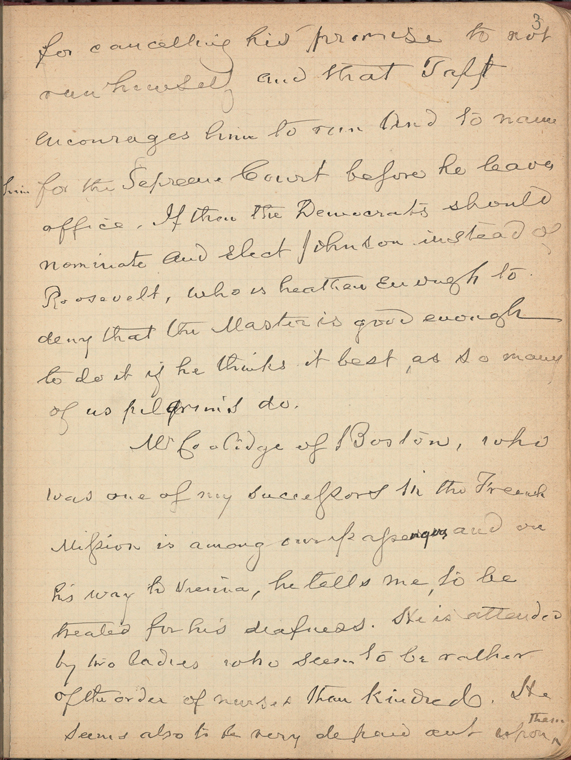 3
for cancelling his promise to not
run himself and that Taft
encourages him to run and to name
him for the Supreme Court before he leaves
office. If then the Democrats should
nominate and elect Johnson instead of
Roosevelt, who is heathen enough to
deny that the Master is good enough
to do it if he thinks it best, as so many
of us pilgrims do.
Mr Coolidge of Boston, who
was one of my successors in the French
Mission is among our passengers and on
his way to Vienna, he tells me, to be
treated for his deafness. He is attended
by two ladies who seem to be rather
of the order of nurses than kindred. He
seems also to be very dependent upon them